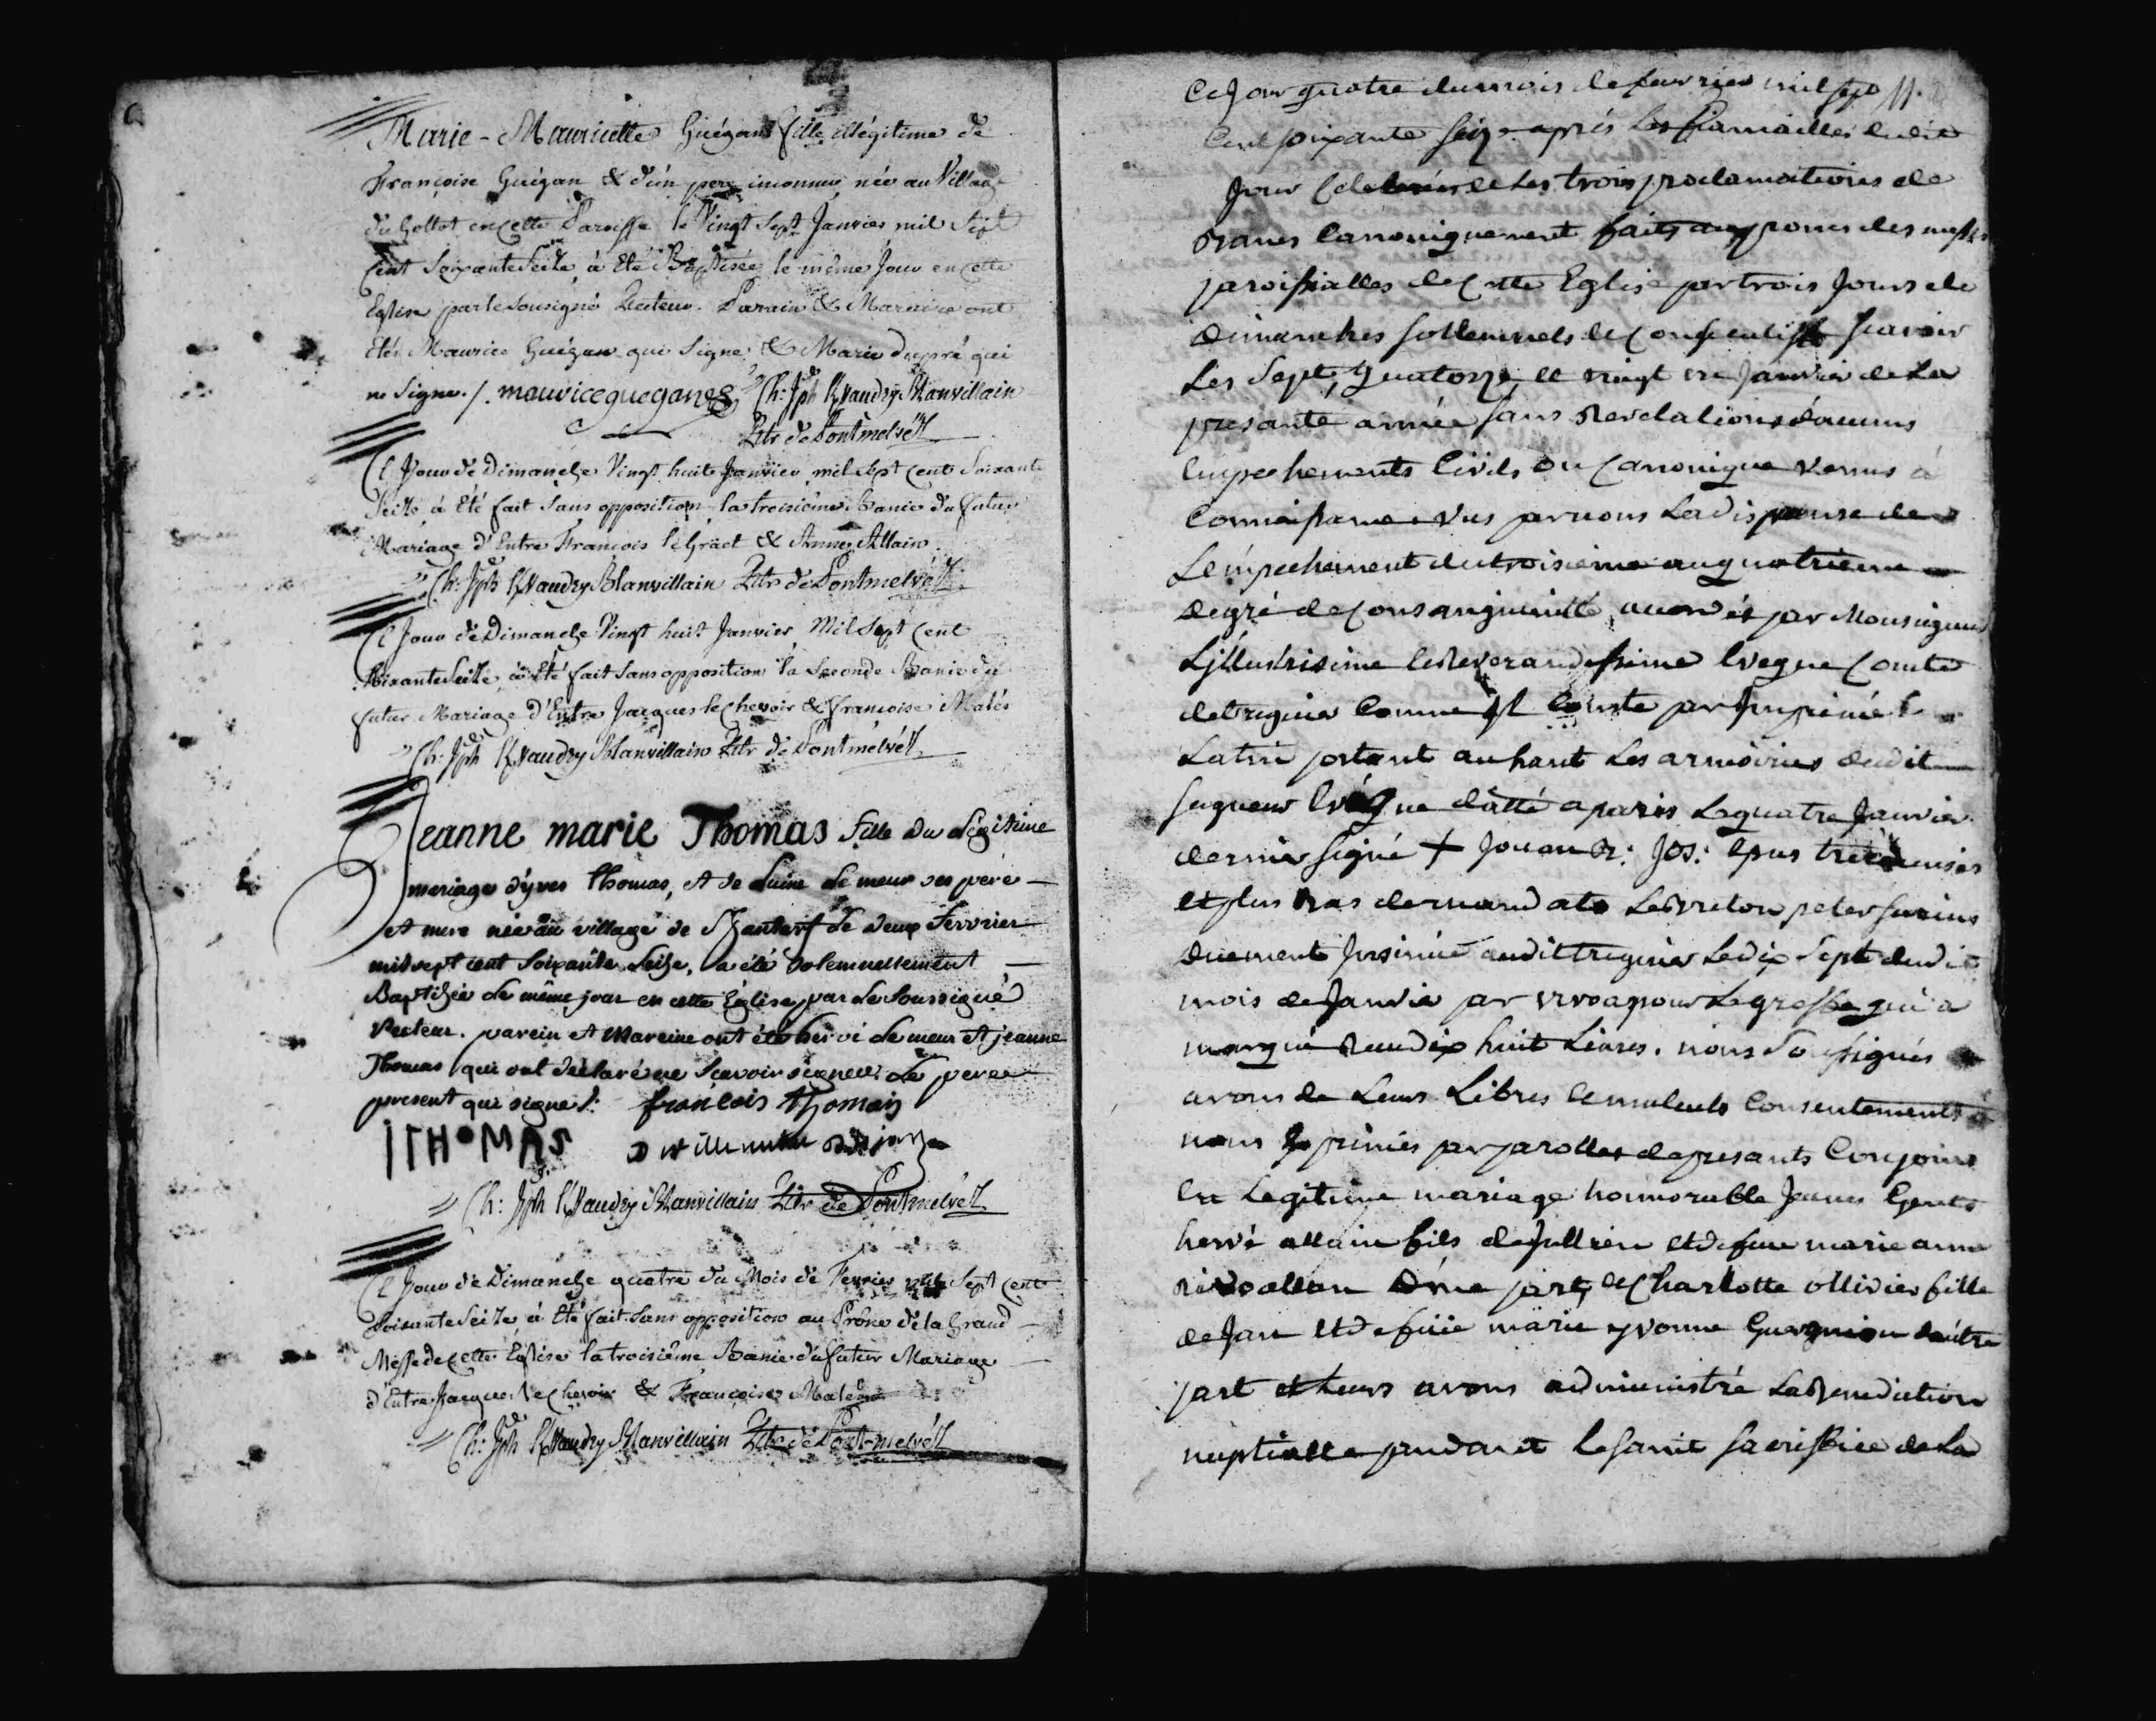 Marie-Mauricette Guégan fille illégitime de
Françoise Guégan & d'ún pere inconnu, née au Village
du Gollot en cette Paroisse le Vingt Sept Janvier mil Sept
Cent Soixante Seize, à Eté Baptisée le même Jour en cette
Eglise par le Sousigné Recteur. Parain & Maraine ont
étés Maurice Guégan qui Signe, & Marie dupré qui
ne Signe. /. maurice guegan Ch: Jph Blanvillain
Rtr de Pontmelvez
Ce Jour de Dimanche Vingt huit Janvier mil Sept Cent Soixante
Seize à Eté fait Sans opposition la troisième Banie du futur
Mariage d'Entre François le Graet & Anne Allain
Ch: Jph Blanvillain Rtr de Pontmelvez
Ce Jour de Dimanche Vingt huit Janvier Mil Sept Cent
Soixante Seize à Eté fait Sans opposition la Seconde Banie du
futur Mariage d'Entre Jacques le Chevoir & Françoise Malés
Ch: Jph Blanvillain Rtr de Pontmelvez
Jeanne marie Thomas fille du Légitime
mariage d'yves Thomas, et de le meur ses pere
et mere née au village de le deux Fevrier
mil sept cent Soixante Seize, a été Solemnellement
Baptisée le même jour en cette Eglise par le Soussigné
Recteur. parein et Mareine ont été hervé le meur et jeanne
Thomas qui ont déclaré ne Sçavoir signer le pere
present qui signe. françois thomas
THOMAS
Ch: Jph Blanvillain Rtr de Pontmelvez
Ce Jour de Dimanche quatre du Mois de Fevrier mil Sept Cent
Soixante Seize à Eté fait Sans opposition au Prône de la Grand
Messe de cette Eglise la troisième Banie du futur Mariage
d'Entre Jacques le Chevoir & Françoise Malés
Ch: Jph Blanvillain Rtr de Pontmelvez
Ce Jour quatre du mois de fevrier mil sept 11.
Cent soixante seize après les fiancailles dudit
Jour Celebrées et les trois proclamations de
Banies Canoniquement faits aux prones des messes
paroissialles de Cette Eglise par trois Jours de
dimanches sollemnels et Consecutifs scavoir
les Sept, quatorze, et vingt un Janvier de la
presante année sans Revelations d'aucuns
Empechements Civils ou Canonique venus à
Connaissance. vus par nous la dispanse de
L'empechement du troisieme au quatrieme
degré de Consanguinité accordés par Monseigneur
L'jllustrissime et Reverandissime Eveque Comte
de treguier Comme Il Conste par Imprimé
Latin portant au haut les armoiries dudit
seigneur Evêque datté a paris le quatre Janvier
dernier signé + Jouan R: Jos: Epus
et plus bas de mandato le breton
duement Insinué audit treguier le dix Sept dudit
mois de Janvier par pour le greffe qui a
marqué Receu dix huit Livres. nous Soussignés
avons de leurs Libres et mutuels Consentements à
nous Exprimés par parolles de presants Conjoins
En Legitime mariage honnorable Jeunes Gents
hervé allain fils de Jullien et de feue marie anne
rivoallan d'une part, et Charlotte ollivier fille
de Jan et de feüe marie yvonne d'autre
part et leurs avons administré la Benediction
nuptialle pandant le saint sacriffice de la